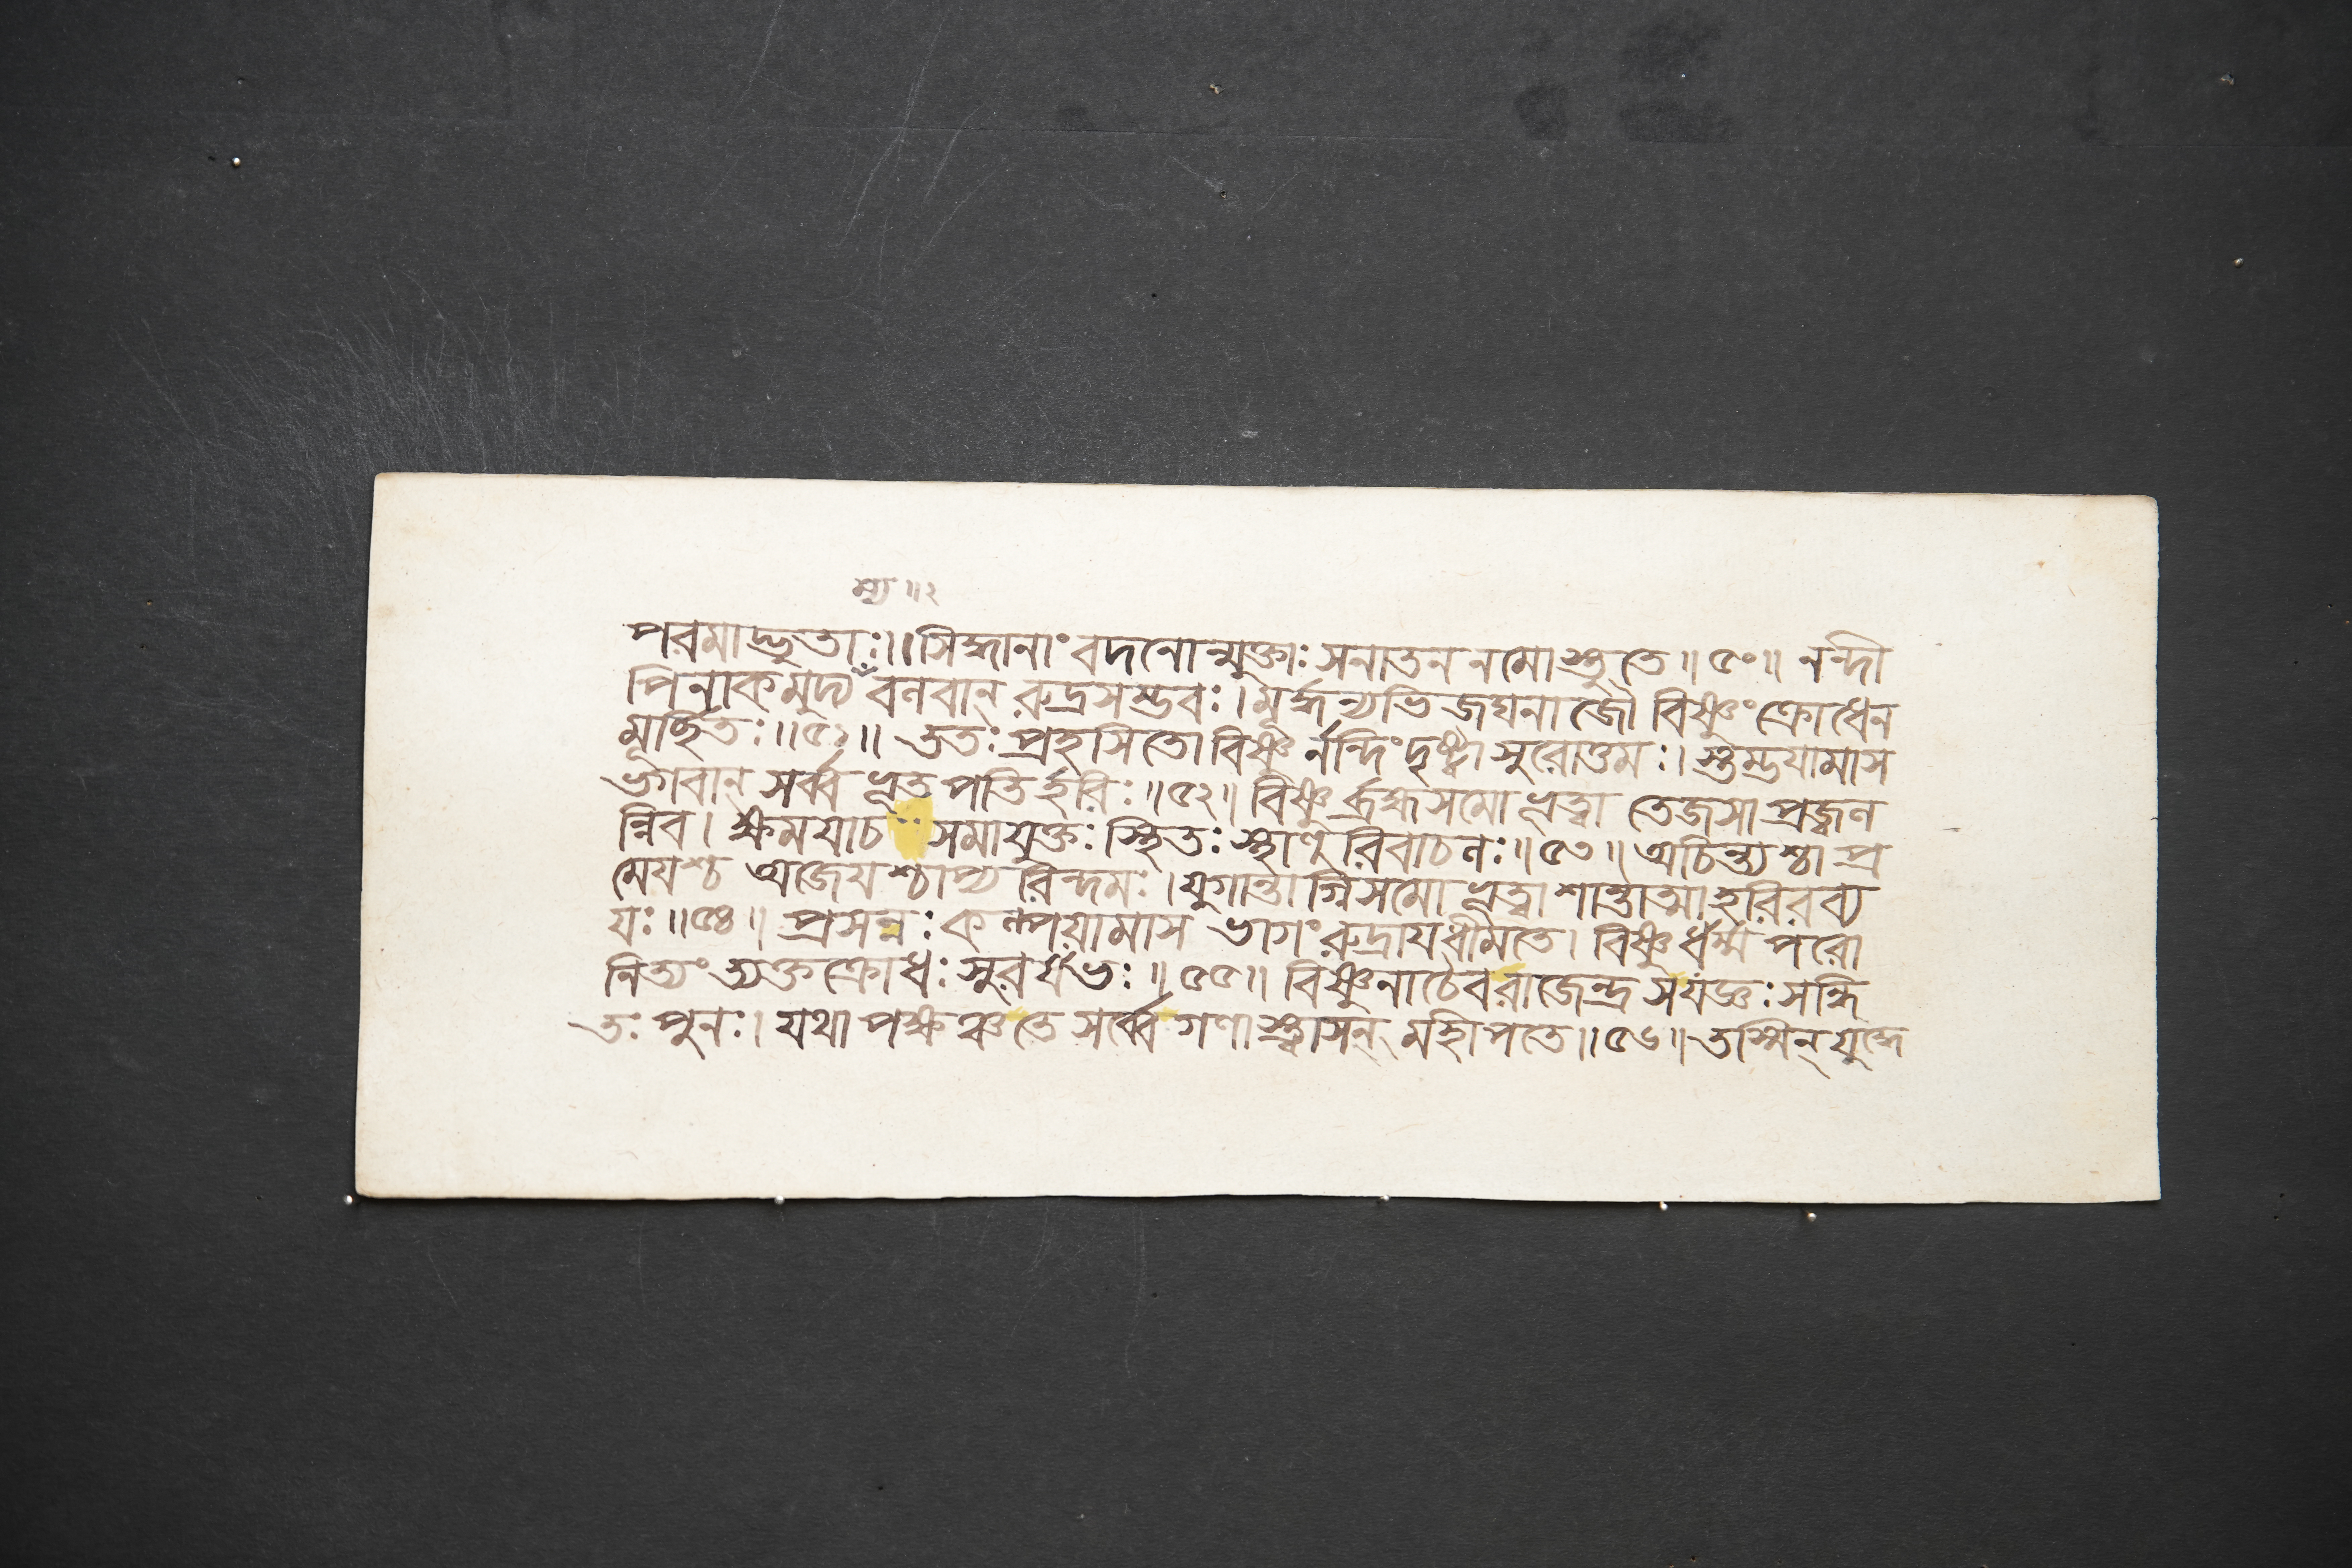 ম্য ॥ ২
পরমাদ্ভুতাঃ।। সিদ্ধানাং বদনোন্মুক্তাঃ সনাতন নমোস্তুতে ॥ ৫০ ॥ নন্দী
পিনাকমুদ্য বলবান্ রুদ্রসম্ভবঃ। মূর্দ্ধন্যভিজঘনাজৌ বিষ্ণুং ক্রোধেন
মূর্চ্ছিতঃ ॥ ৫১ ॥ ততঃ প্রহসিতো বিষ্ণুর্নন্দিং দৃষ্ট্বা সুরোত্তমঃ। স্তম্ভযামাস
ভগবান্ সর্ব্বভূতপতির্হরিঃ ॥ ৫২ ॥ বিষ্ণুর্ব্রহ্মসমো ভূত্বা তেজসা প্রজ্বল
ন্নিব। ক্ষমযাচ সমাযুক্তঃ স্থিতঃ স্থাণুরিবাচলঃ ॥ ৫৩ ॥ অচিন্ত্যশ্চাপ্র
মেযশ্চ অজেযশ্চাপ্যরিন্দমঃ। যুগান্তাগ্নিসমো ভূত্বা শান্তাত্মা হরিরব্য
যঃ ॥ ৫৪ ॥ প্রসন্নঃ কল্পযামাস ভাগং রুদ্রায ধীমতে। বিষ্ণুর্ধর্ম্মপরো
নিত্যং ত্যক্তক্রোধঃ সুরর্ষভঃ ॥ ৫৫ ॥ বিষ্ণুনাচৈব রাজেন্দ্র স যজ্ঞঃ সন্ধি
তঃ পুনঃ। যথাপক্ষঞ্চ তে সর্ব্বে গণাশ্চাসন্ মহীপতে ॥ ৫৬ ॥ তস্মিন্ যুদ্ধে